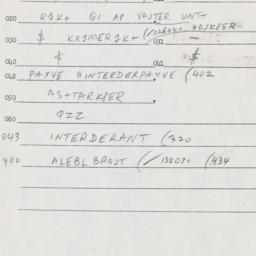 020 R1K+ Q1 AP VAJTER UNT+
030 $ KRIMERIK+ 031 HOJKPER-
040 041 $
042 PAXVE QINTERDERPAXVE (402
050 AS+TARKPER
060 9ZZ
043 INTERDERANT (320
400 ALEBL BROST (/132070 (434